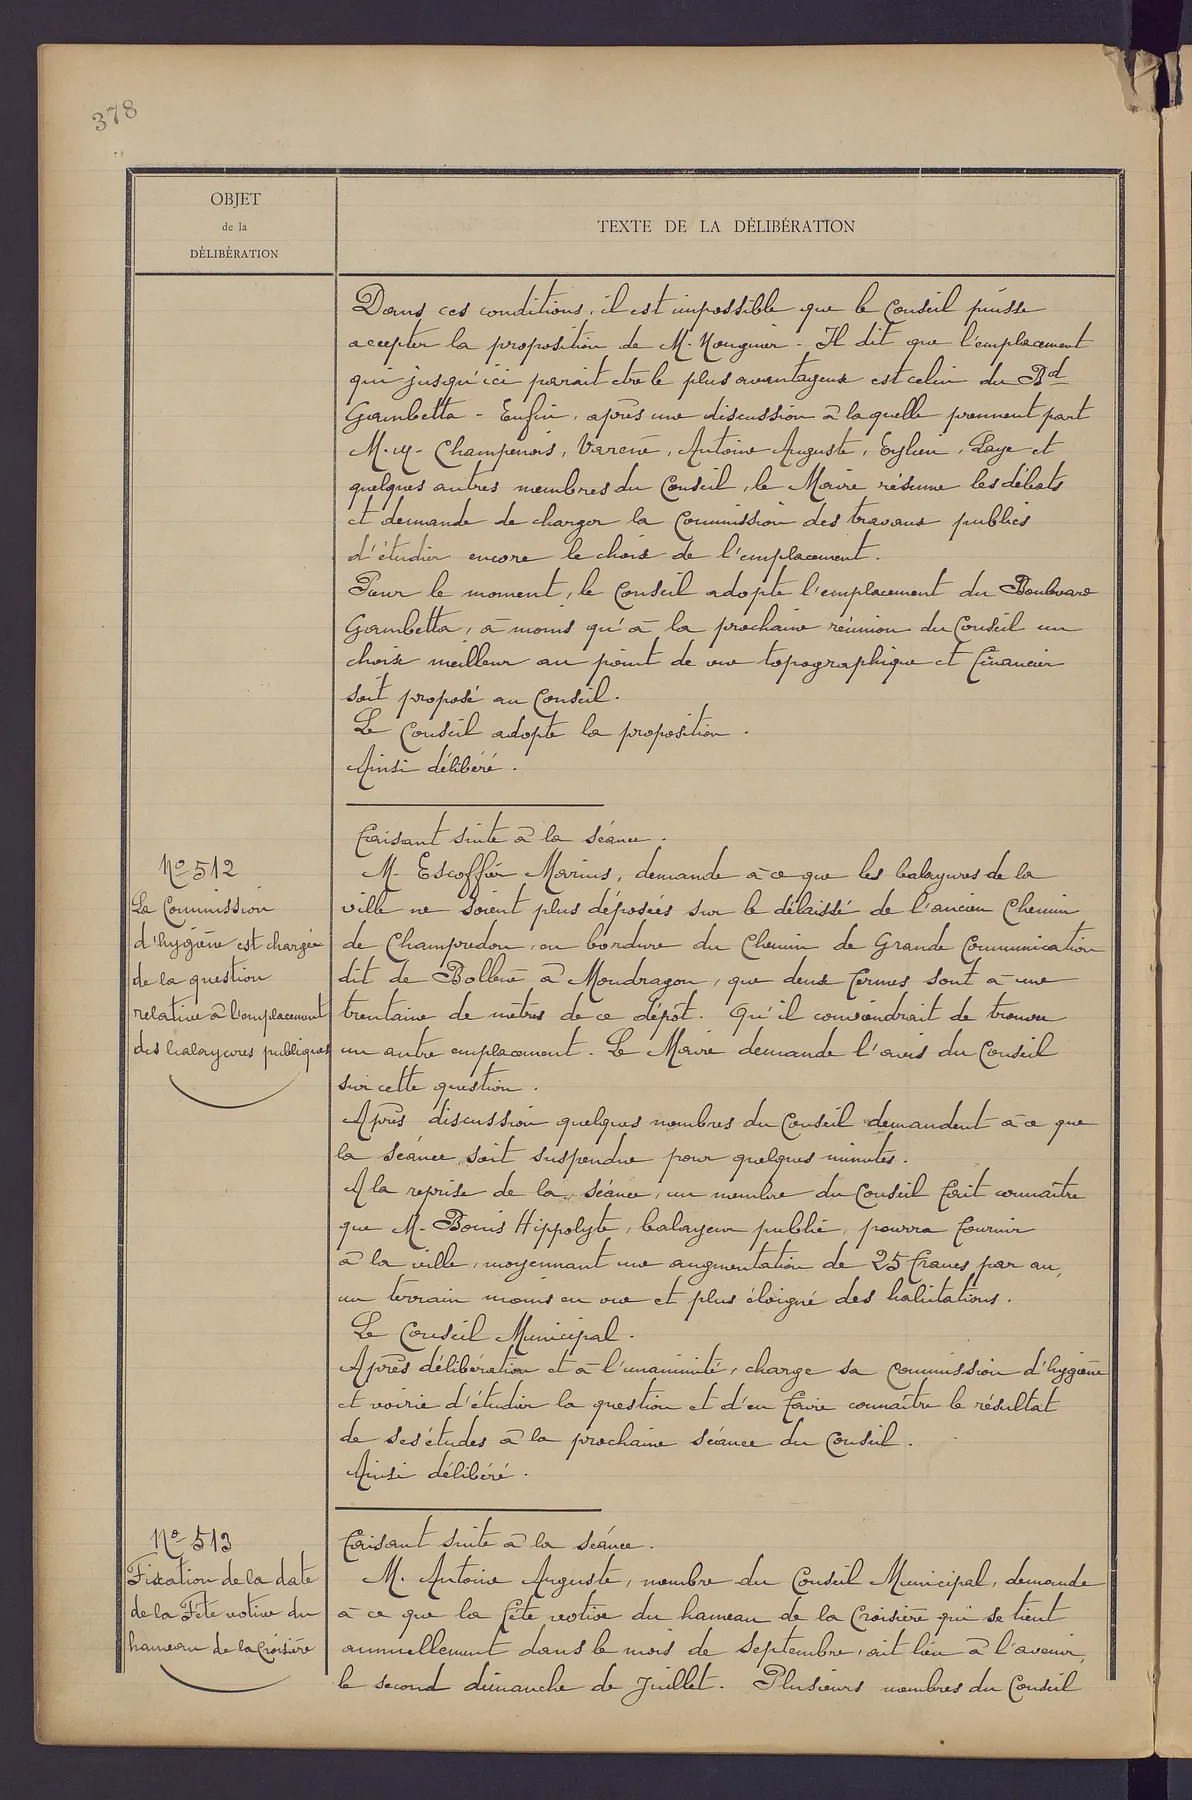 378
OBJET
de la
DÉLIBÉRATION
TEXTE DE LA DÉLIBÉRATION
Dans ces conditions, il est impossible que le Conseil puisse
accepter la proposition de M. Mougnier - Il dit que l'emplacement
qui jusqu'ici parait etre le plus avantageux est celui du Bd
Gambetta - Enfin, après une discussion à laquelle prennent part
M.M. Champenois, Varène, Antoine Auguste, Eylieu, Laye et
quelques autres membres du Conseil, le Maire résume les débats
et demande de charger la Commission des travaux publics
d'étudier encore le choix de l'emplacement.
Pour le moment, le Conseil adopte l'emplacement du Boulevard
Gambetta, à moins qu'à la prochaine réunion du Conseil un
choix meilleur au point de vue topographique et financier
soit proposé au Conseil.
Le Conseil adopte la proposition.
Ainsi délibéré.
Faisant suite à la séance.
No 512
La Commission
d'hygiène est chargée
de la question
relative à l'emplacement
des balayures publiques
M. Escoffier Marius, demande à ce que les balayures de la
ville ne soient plus déposées sur le délaissé de l'ancien Chemin
de Champredon, en bordure du Chemin de Grande Communication
dit de Bollène à Mondragon, que deux fermes sont à une
trentaine de mètres de ce dépôt. Qu'il conviendrait de trouver
un autre emplacement. Le Maire demande l'avis du Conseil
sur cette question.
Après discussion quelques membres du Conseil demandent à ce que
la séance soit suspendue pour quelques minutes.
A la reprise de la séance, un membre du Conseil fait connaître
que M. Bouis Hippolyte, balayeur public, pourra fournir
à la ville, moyennant une augmentation de 25 francs par an,
un terrain moins en vue et plus éloigné des habitations.
Le Conseil Municipal.
Après délibération et à l'unanimité, charge sa Commission d'hygiène
et voirie d'étudier la question et d'en faire connaître le résultat
de ses études à la prochaine séance du Conseil.
Ainsi délibéré.
No 513
Fixation de la date
de la Fête votive du
hameau de la Croisière
Faisant suite à la séance.
M. Antoine Auguste, membre du Conseil Municipal, demande
à ce que la fête votive du hameau de la Croisière qui se tient
annuellement dans le mois de Septembre, ait lieu à l'avenir,
le second dimanche de Juillet. Plusieurs membres du Conseil